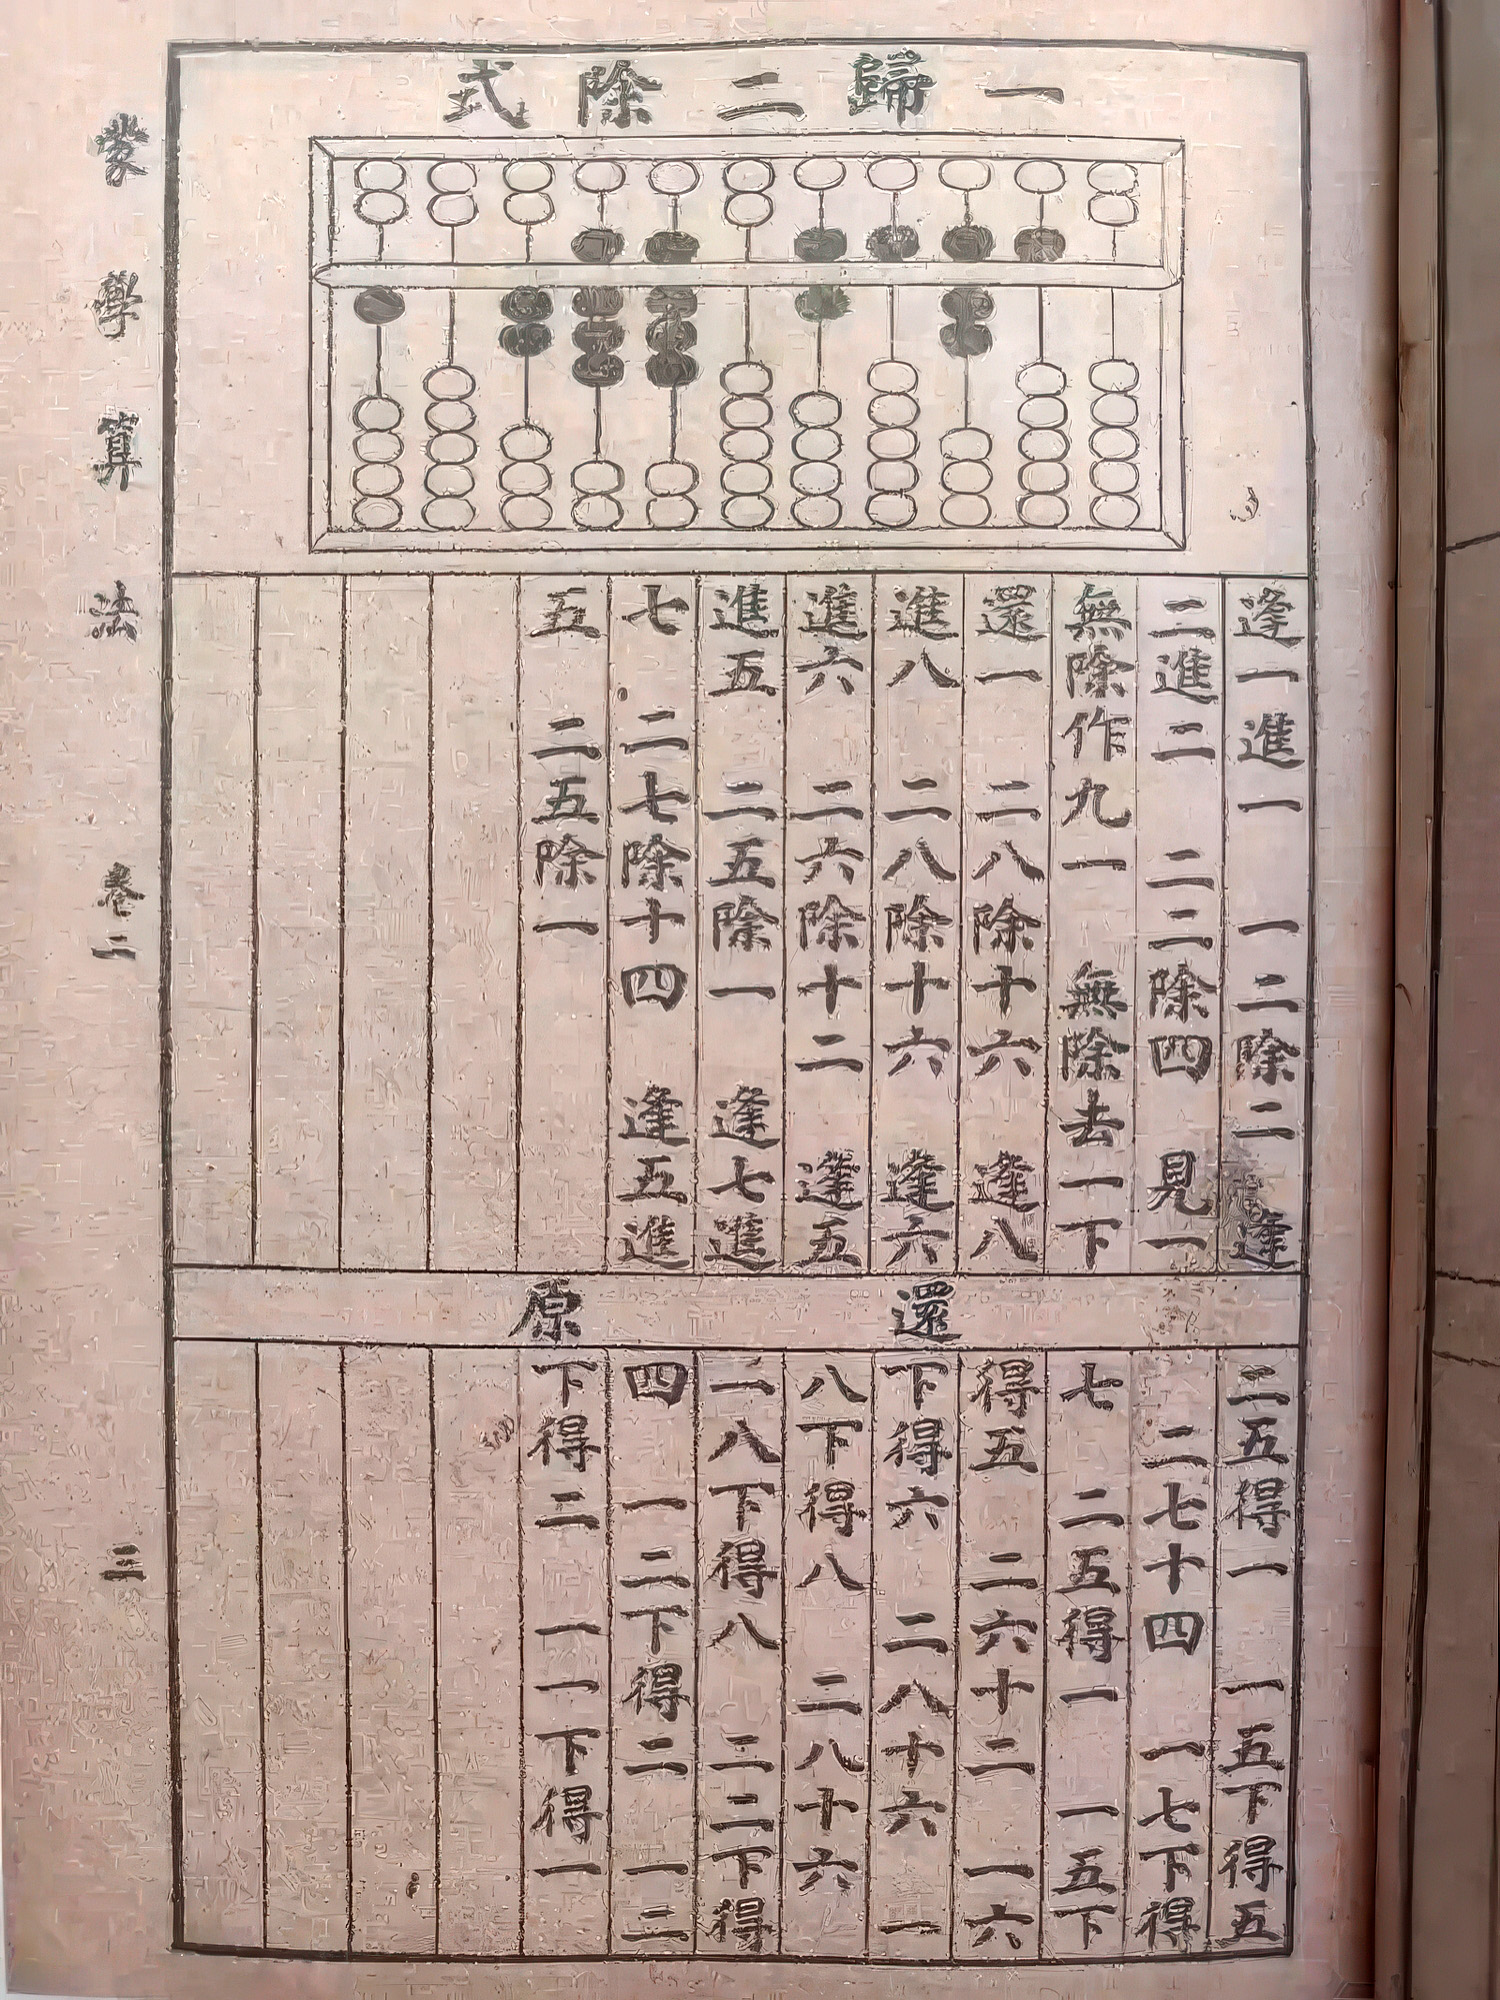 一歸二除式
逢一進一　一二除二　逢
二進二　二二除四　見一
無除作九一　無除去一下
還一　二八除十六　逢八
進八　二八除十六　逢六
進六　二六除十二　逢五
進五　二五除一　逢七進
七　二七除十四　逢五進
五　二五除一
還原
二五得一　一五下得五
二七十四　一七下得
七　二五得一　一五下
得五　二六十二　一六
下得六　二八十六　一
八下得八　二八十六
一八下得八　二二下得
四　一二下得二　一二
下得二　一一下得一
蒙學算法　卷二　三